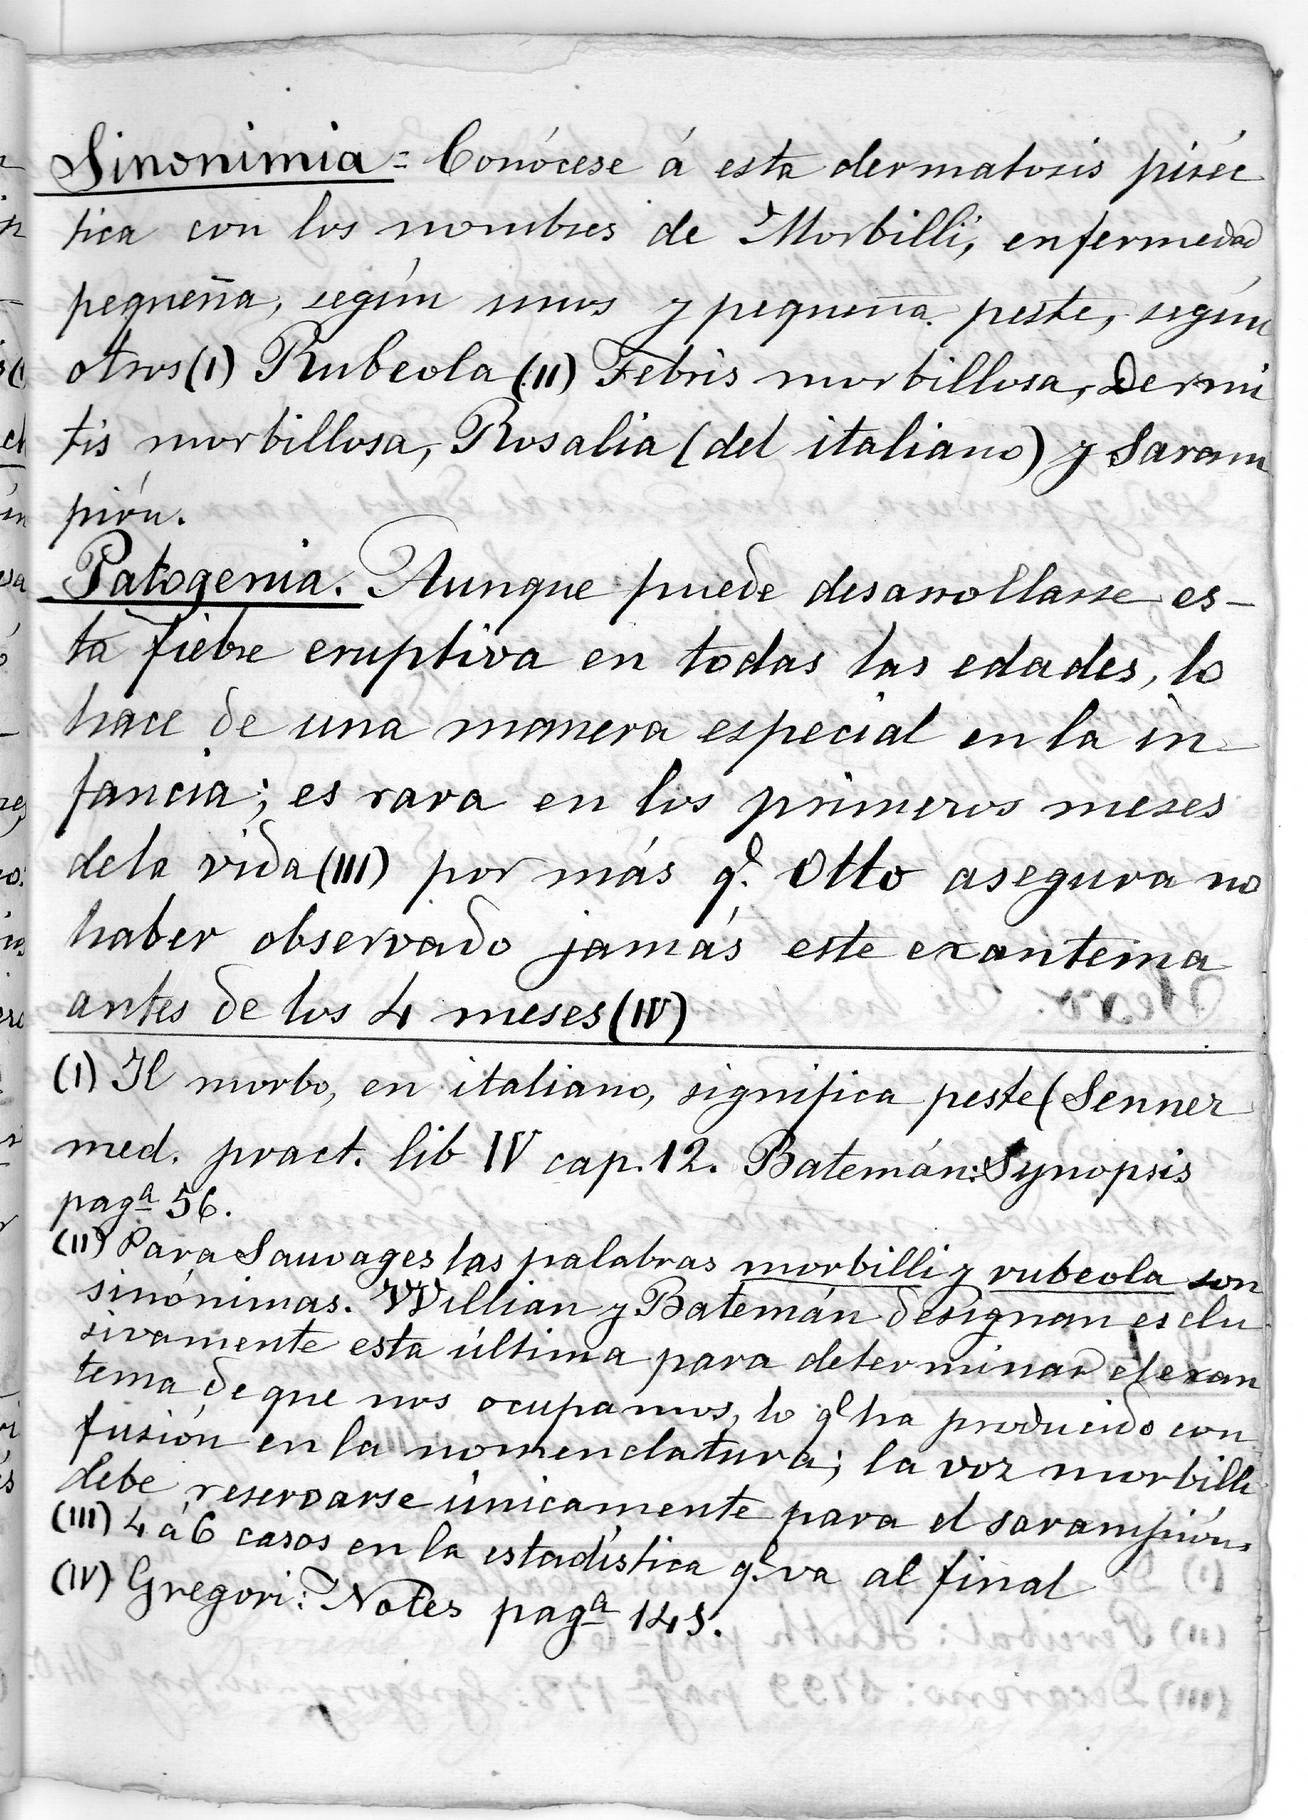 Sinonimia = Conócese á esta dermatosis piréc
tica con los nombres de Morbilli, enfermedad
pequeña, según unos y pequeña peste, según
otros (I) Rubeola (II) Febris morbillosa, Dermi
tis morbillosa, Rosalia (del italiano) y Saram
pión.
Patogenia. Aunque puede desarrollarse es-
ta fiebre eruptiva en todas las edades, lo
hace de una manera especial en la in-
fancia; es rara en los primeros meses
de la vida (III) por más q.e Otto asegura no
haber observado jamás este exantema
antes de los 4 meses (IV)
(I) Il morbo, en italiano, significa peste (Senner
med. pract. lib IV cap. 12. Batemán: Synopsis
pag.a 56.
(II) Para Sauvages las palabras morbilli y rubeola son
sinónimas. Willian y Batemán designan esclu
sivamente esta última para determinar el exan
tema de que nos ocupamos, lo q.e ha producido con
fusión en la nomenclatura; la voz morbilli
debe reservarse únicamente para el sarampión.
(III) 4 á 6 casos en la estadística q.e va al final
(IV) Gregori: Notes pag.a 145.